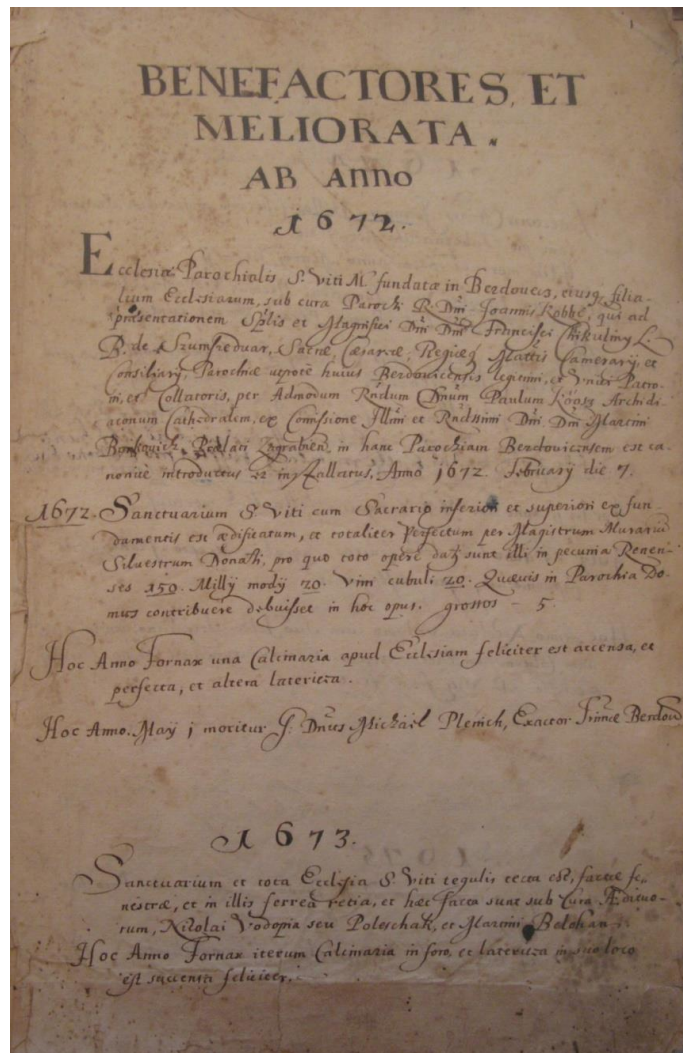 BENEFACTORES, ET
MELIORATA.
AB Anno
1672.
Ecclesiæ Parochialis S. Viti M. fundatæ in Berdoucis, eiusq filia-
lium Ecclesiarum, sub cura Parochi R. Dni Joannis Kobbe, qui ad
præsentationem Splis et Magnifici Dni Dni Francisci Chikuliny L.
B. de Szumszeduar, Sacræ, Cæsareæ, Regiæq Mattis Camerarij, et
Consiliarij, Parochiæ utpote huius Berdovicensis legitimi, et Unici Patro-
ni, et Collatoris, per Admodum Rndum Dnum Paulum Archidi-
aconum Cathedralem, ex Comissione Illmi et Rndssimi Dni Dni Martini
Zagrabien, in hanc Parochiam Berdovicensem est ca-
nonice introductus et installatus, Anno 1672. February die 7.
1672. Sanctuarium S. Viti cum Sacrario inferiori et superiori ex fun-
damentis est ædificatum, et totaliter perfectum per Magistrum Murariũ
Siluestrum Donati, pro quo toto opere data sunt illi in pecunia Renen-
ses 150. Milly modij 20. Vini cubuli 20. Quæuis in Parochia Do-
mus contribuere debuisset in hoc opus. grossos - 5.
Hoc Anno Fornax una Calcinaria apud Ecclesiam feliciter est accensa, et
perfecta, et altera latericza.
Hoc Anno. May j moritur G. Dnus Michäel Plemich, Exactor Berdou
1673.
Sanctuarium et tota Ecclesia S. Viti tegulis tecta est, factæ fe-
nestræ, et in illis ferrea retia, et hæc facta sunt sub cura Ædituo-
rum, Nicolai Vodopia seu Poleschak, et Martini Belohan.
Hoc Anno Fornax iterum Calcinaria in foro, et latericza in suo loco
est succensa feliciter.